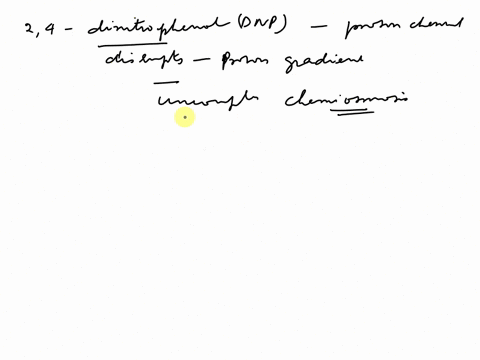 2,4 - dinitrophenol (DNP) - proton channel
disrupts - Proton gradient
uncouples chemiosmosis